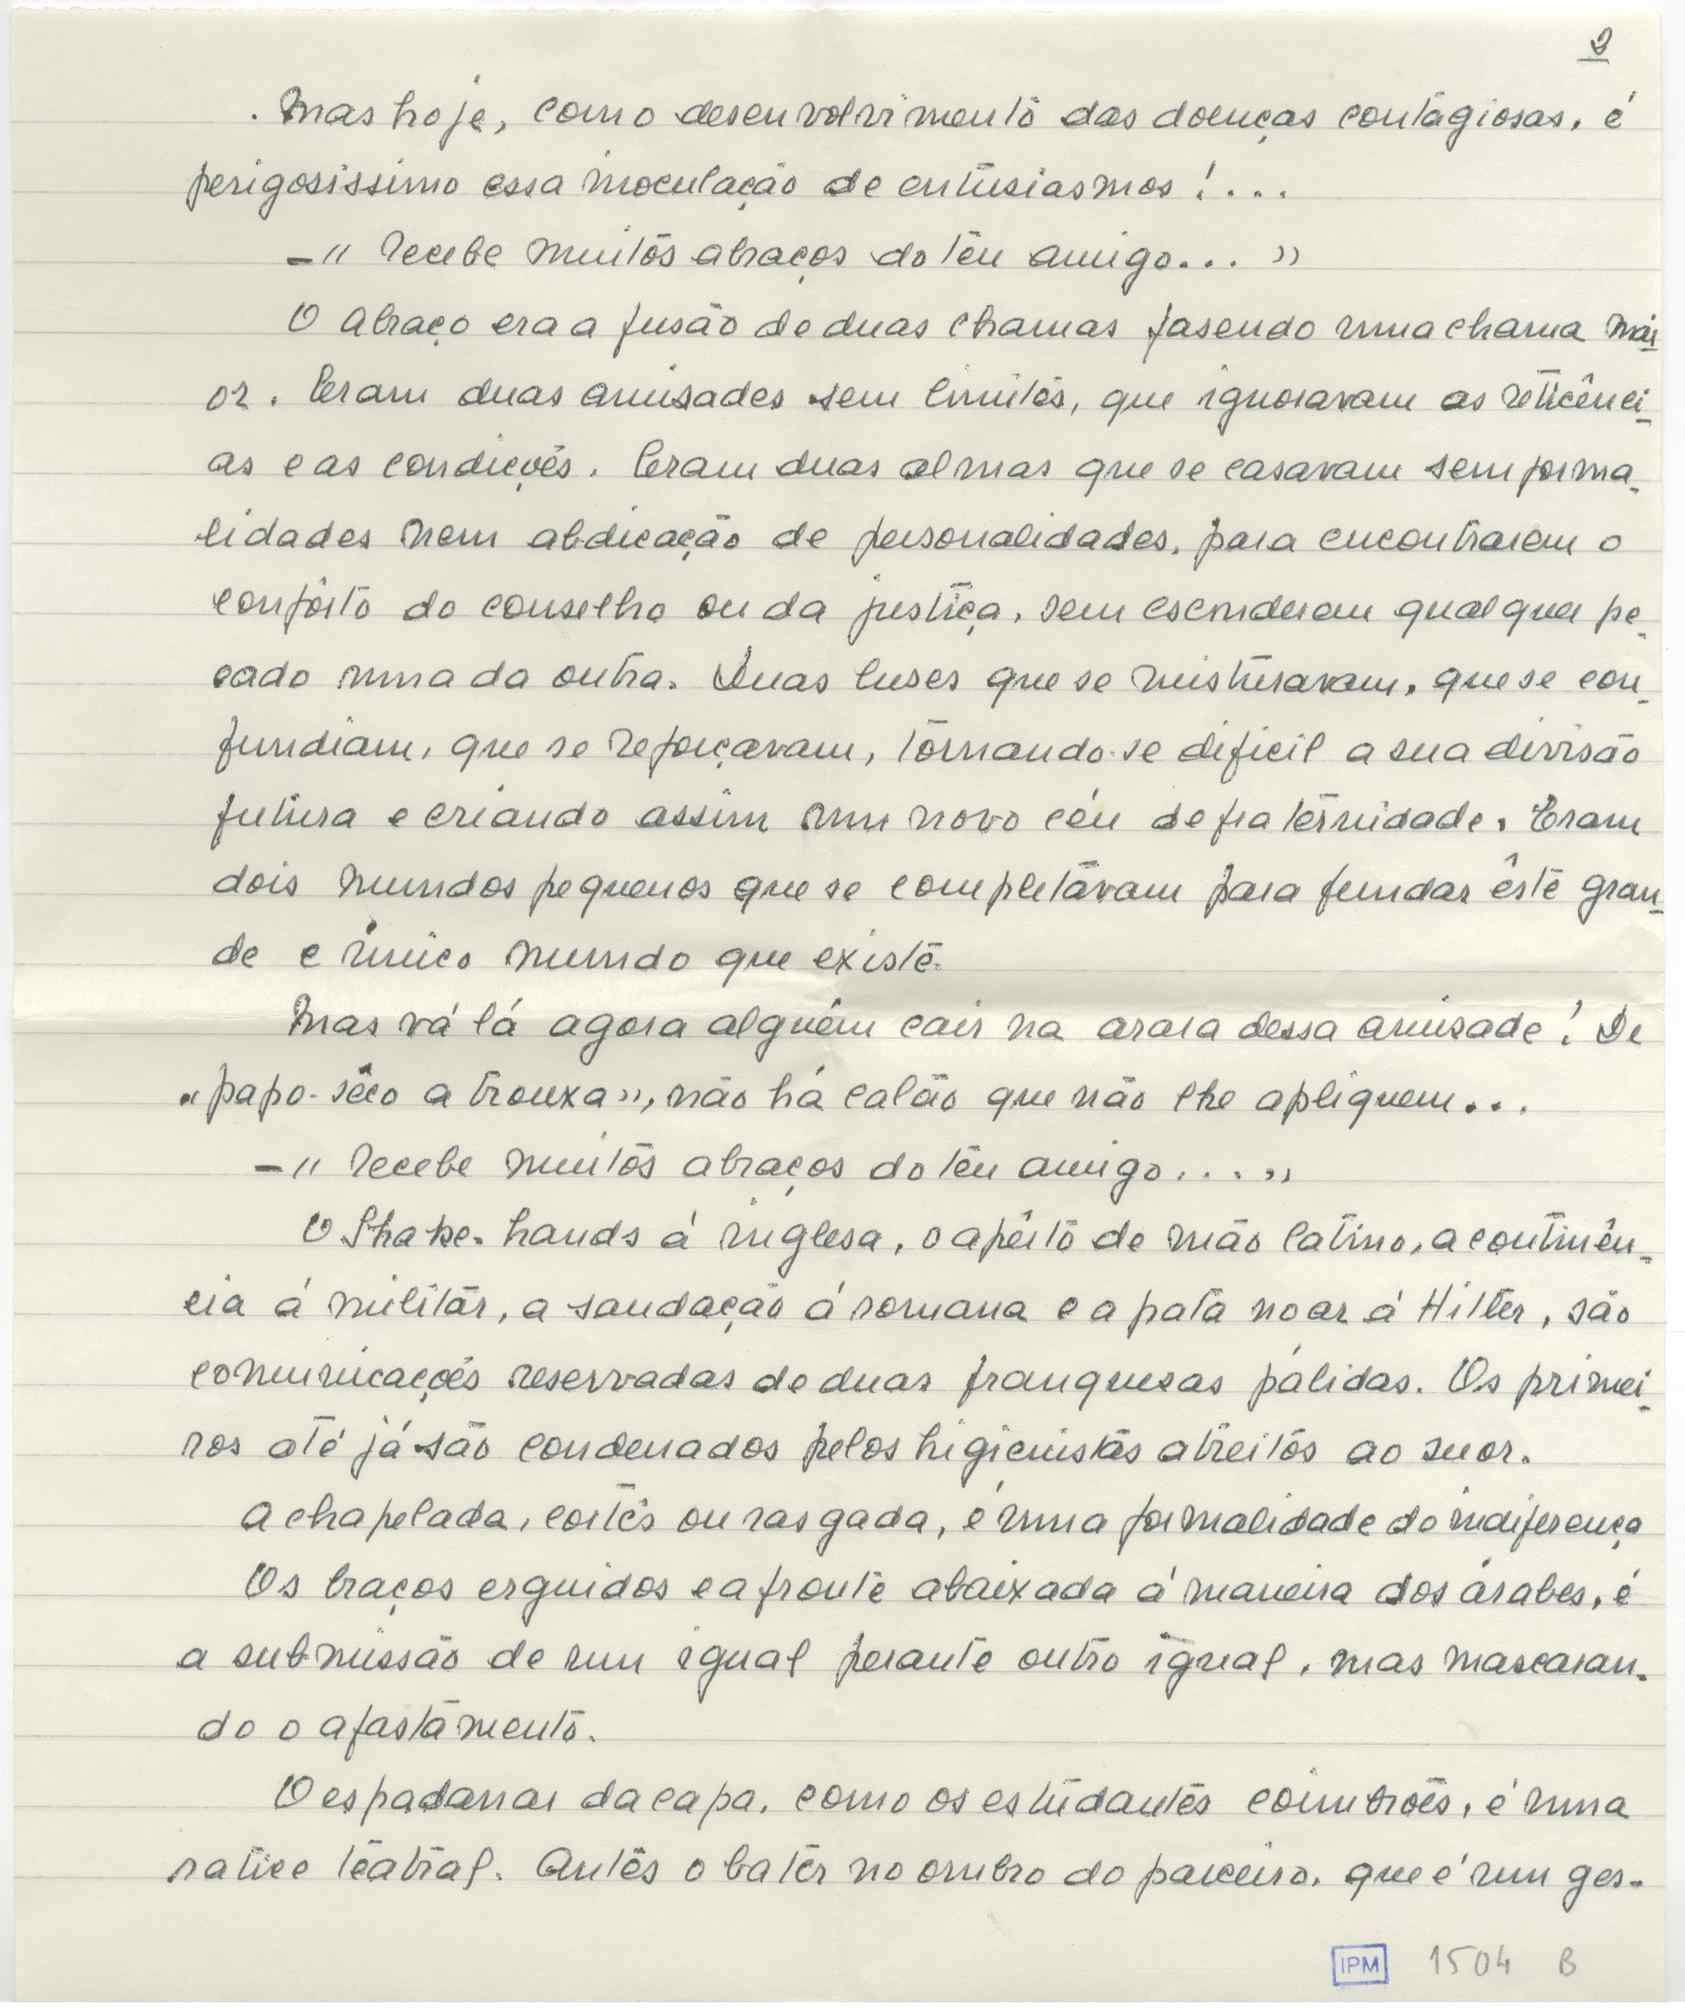 2
. Mas hoje, com o desenvolvimento das doenças contagiosas, é
perigosissimo essa inoculação de entusiasmos!...
-" recebe muitos abraços do teu amigo... "
O abraço era a fusão de duas chamas fasendo uma chama mai
or. Eram duas amisades sem limites, que ignoravam as reticênci-
as e as condições. Eram duas almas que se casavam sem forma-
lidades nem abdicação de personalidades, para encontrarem o
confôrto do conselho ou da justiça, sem esconderem qualquer pe-
cado uma da outra. Duas luses que se misturavam, que se con-
fundiam, que se reforçavam, tornando-se dificil a sua divisão
futura e criando assim um novo céu de fraternidade. Eram
dois mundos pequenos que se completavam para fundar êste gran-
de e único mundo que existe.
Mas vá lá agora alguêm cair na arara dessa amisade! De
"papo-sêco a trouxa", não há calão que não lhe apliquem...
-" recebe muitos abraços do teu amigo.... "
O Shake-hands á inglesa, o apêrto de mão latino, a continên-
cia á militar, a saudação á romana e a pata no ar á Hitler, são
comunicações reservadas de duas franquesas pálidas. Os primei-
ros até já são condenados pelos higienistas atreitos ao suor.
A chapelada, cortês ou rasgada, é uma formalidade do indiferença
Os braços erguidos e a fronte abaixada á maneira dos árabes, é
a submissão de um igual perante outro igual, mas mascaran-
do o afastamento.
O espadanar da capa, como os estudantes coimbrões, é uma
ratice teatral. Antes o bater no ombro do parceiro, que é um ges-
IPM 1504 B